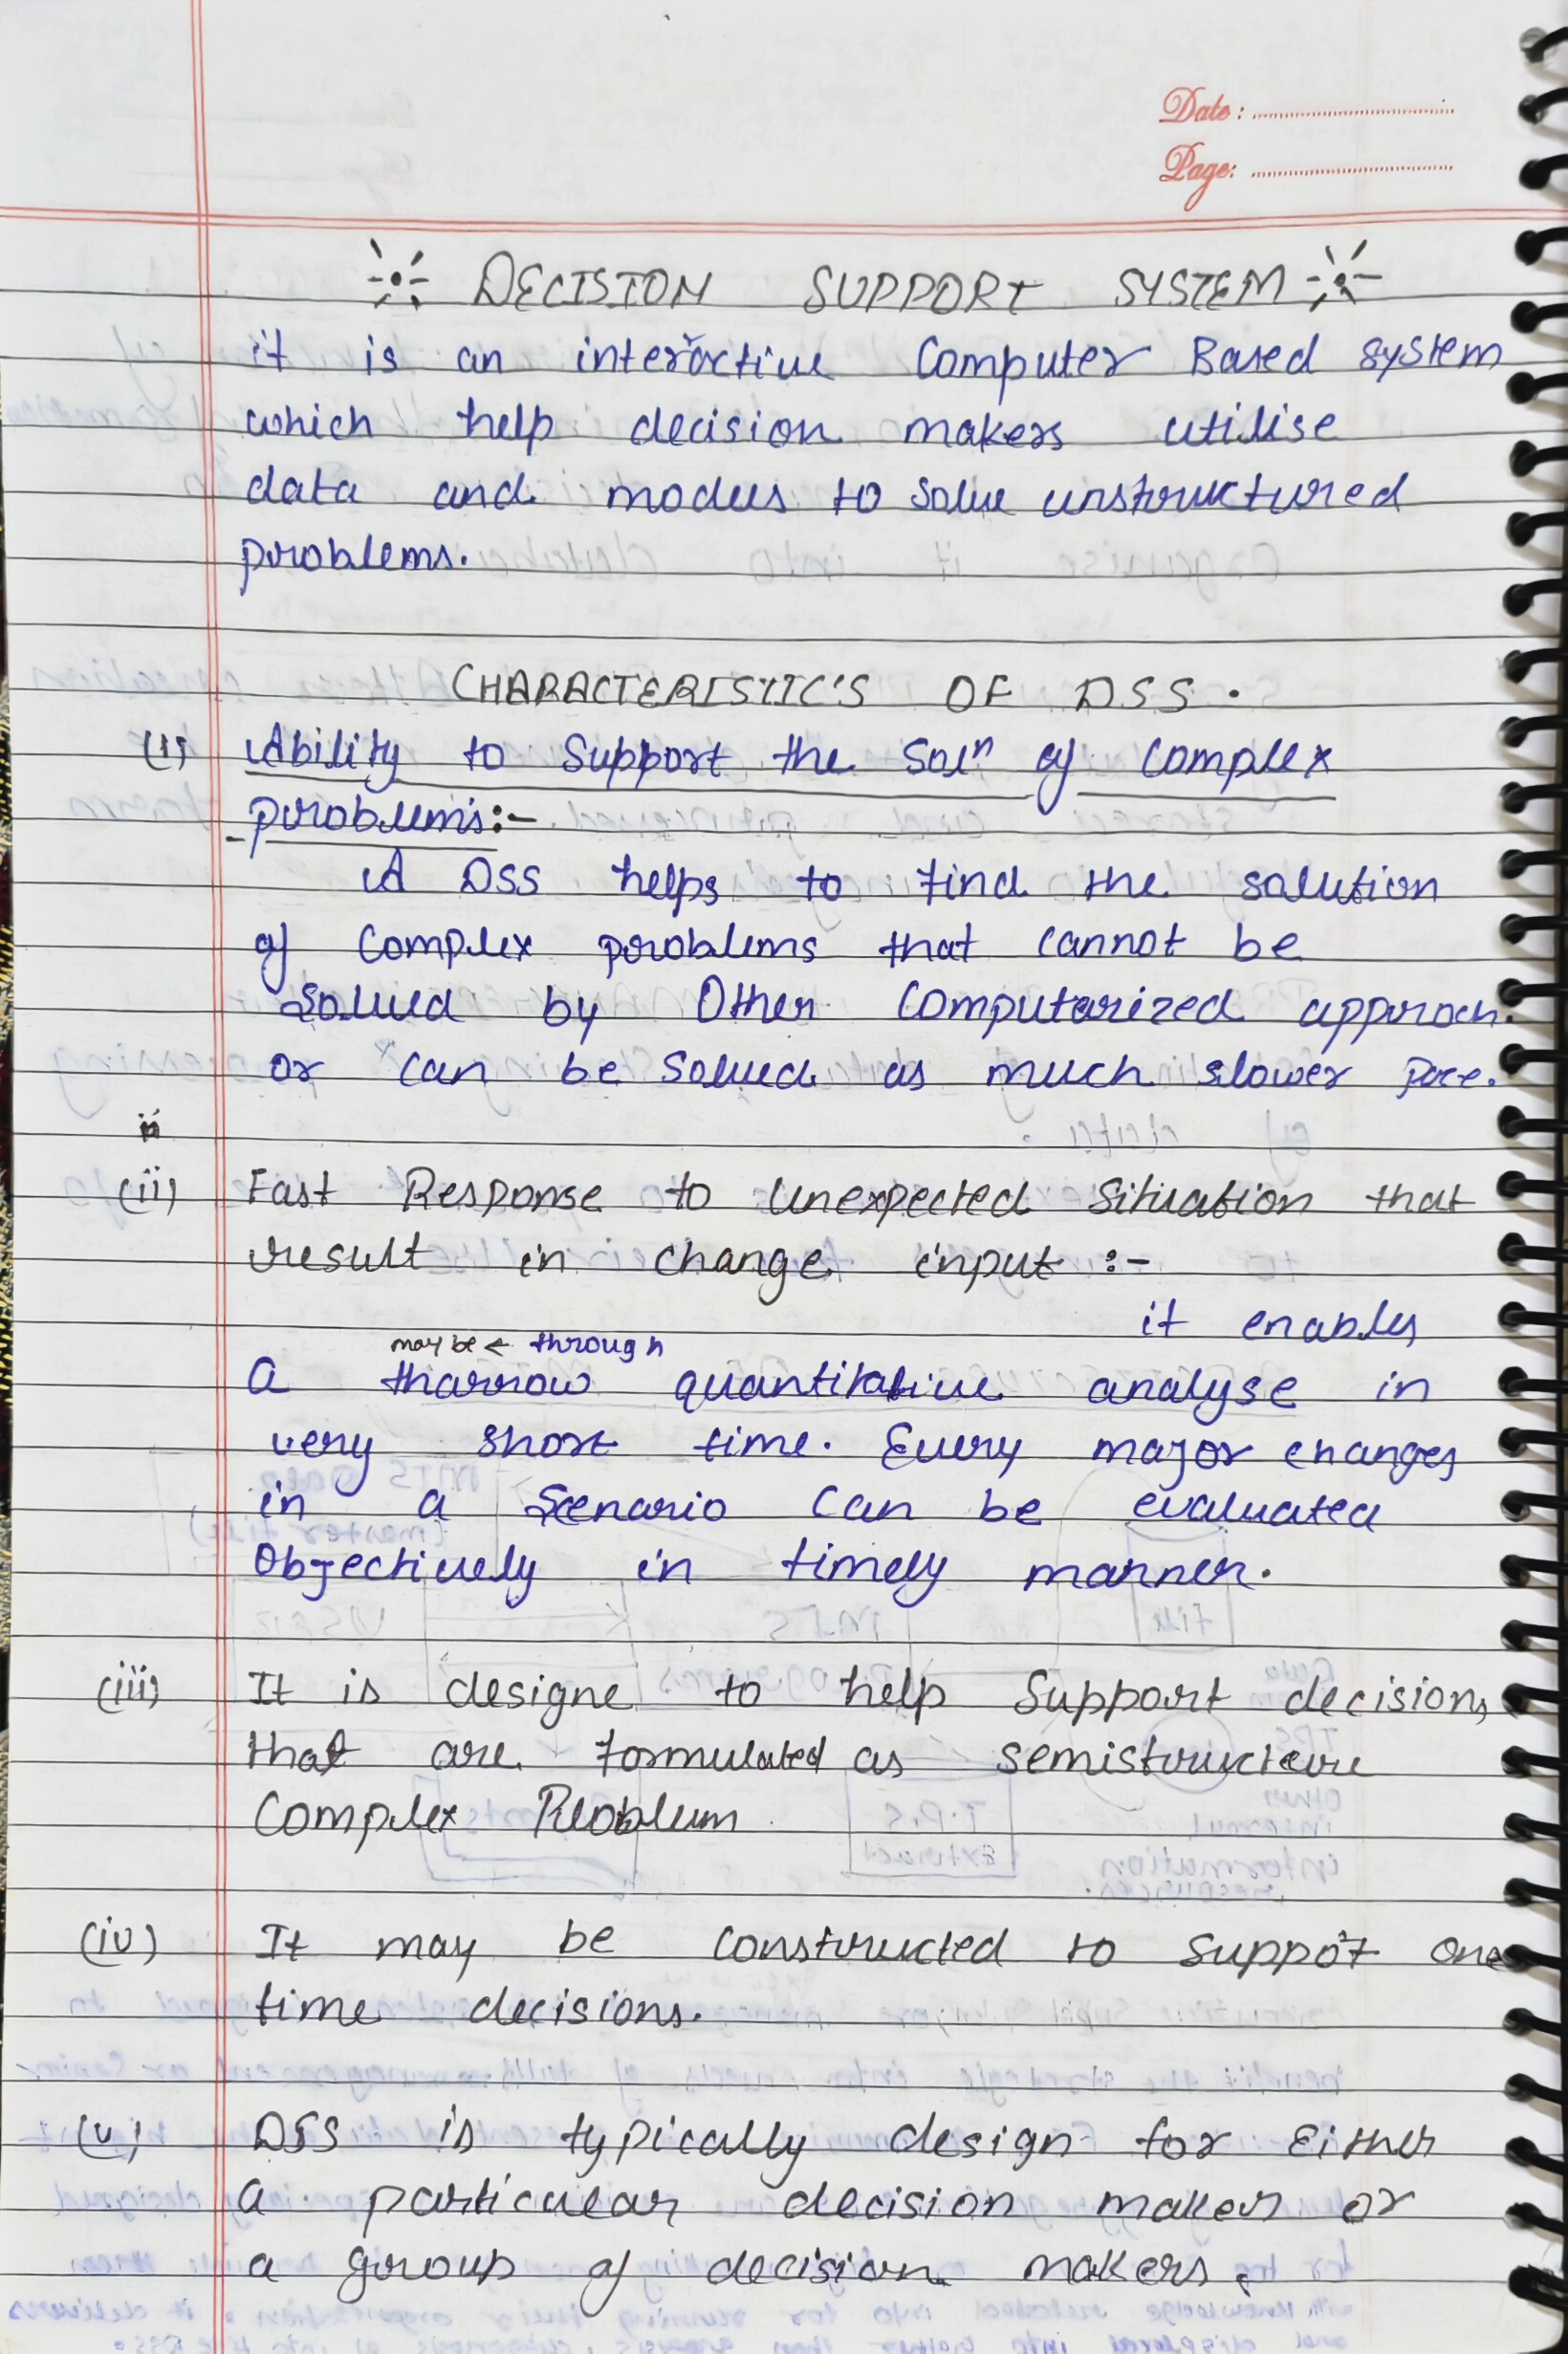 Date:
Page:
DECISION SUPPORT SYSTEM
it is an interactive Computer Based system
which help decision makers utilise
data and models to solve unstructured
problems.
CHARACTERISTIC'S OF DSS.
(i) Ability to Support the Solⁿ of Complex
problem's:-
A DSS helps to find the solution
of Complex problems that cannot be
Solved by Other Computarized approch.
or can be Solved as much slower pace.
ii
(ii) Fast Response to Unexpected Situation that
result in change input :-
it enables
maybe ← through
a tharrow quantitative analyse in
very short time. Every major changes
in a Scenario Can be evaluated
Objectively in timely manner.
(iii) It is designe to help Support decisions
that are formulated as semistructure
Complex Problem
(iv) It may be Constructed to Suppot one
time decisions.
(v) DSS is typically design for Either
a particular decision maker or
a group of decision makers.